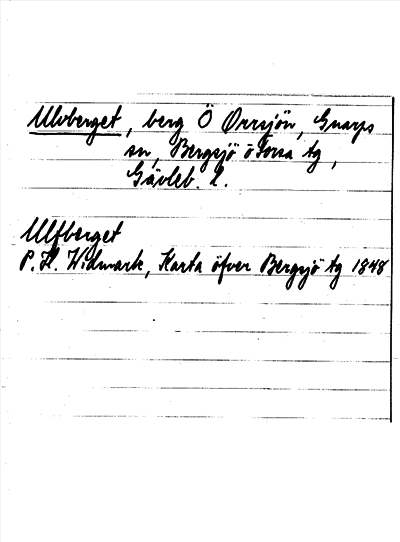 Ulvberget, berg Ö Orrsjön, Gnarps
sn, Bergsjö o Forsa tg,
Gävleb. l.
Ulfberget
P. H. Widmark, Karta öfver Bergsjö tg 1848